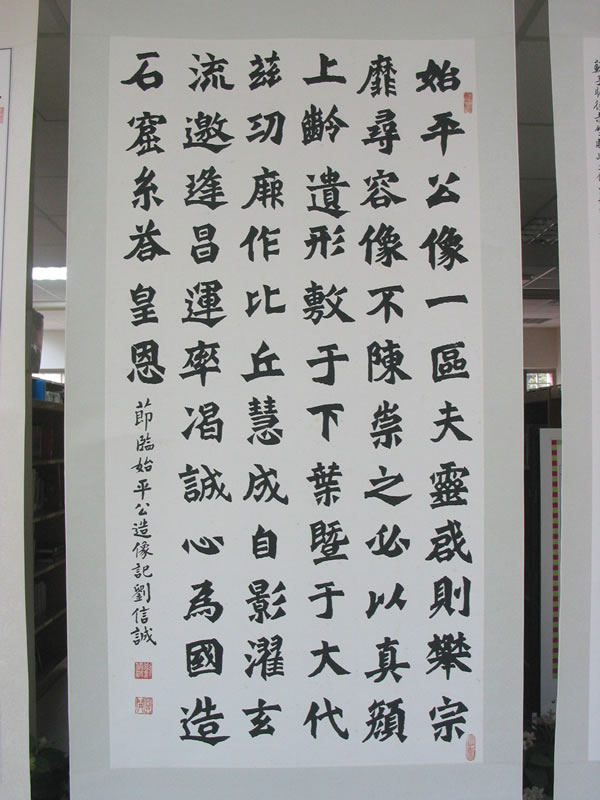 始平公像一區夫靈啟則攀宗
靡尋容像不陳崇之必以真顏
上齡遺形敷于下葉暨于大代
茲功厥作比丘慧成自影濯玄
流邀逢昌運率渴誠心為國造
石窟系荅皇恩
節臨始平公造像記劉信誠